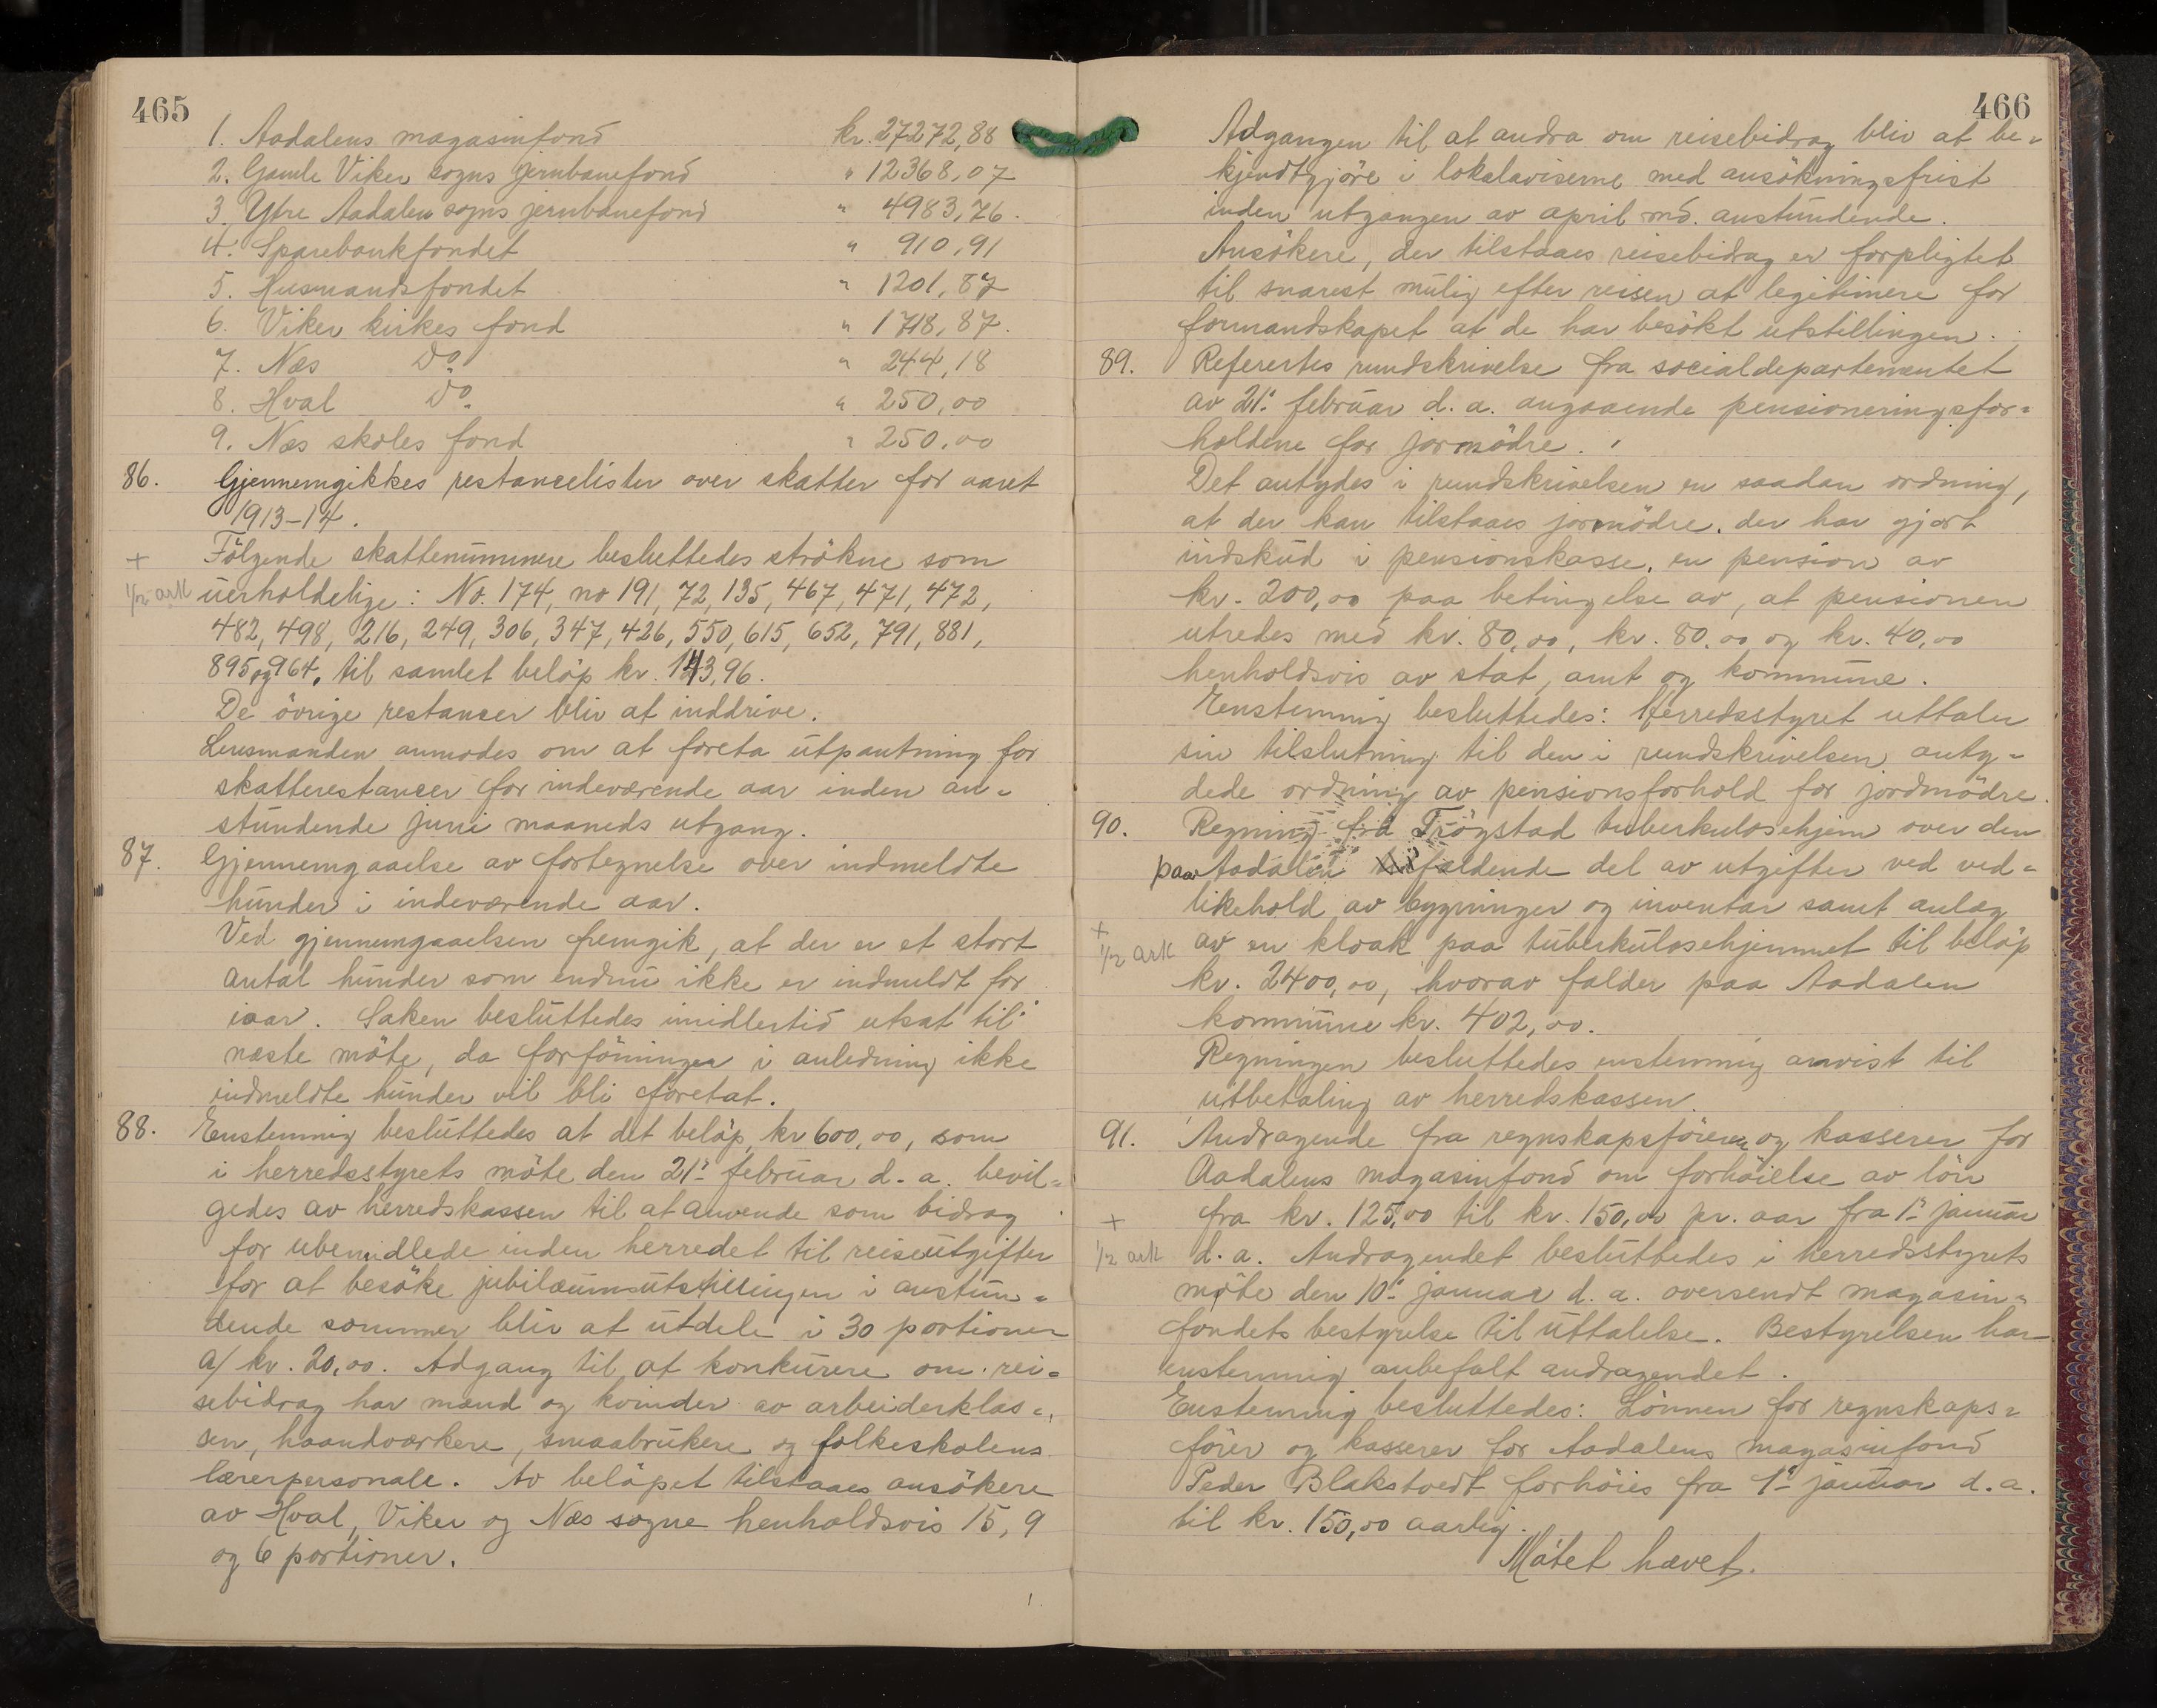 465
1. Aadalens magasinfond kr. 27272,88
2. Gamle Viker sogns jernbanefond " 12368,07
3. Ytre Aadalen sogns jernbanefond " 4983,76.
4. Sparebankfondet " 910,91
5. Husmandsfondet " 1201,87
6. Viker kirkes fond " 1718,87.
7. Næs Do " 244,18
8. Hval Do " 250,00
9. Næs skoles fond " 250,00
86. Gjennemgikkes restancelister over skatter for aaret
1913-14.
+ Følgende skattenummere besluttedes strøkne som
1/2 ark uerholdelige: No. 174, no 191, 72, 135, 467, 471, 472,
482, 498, 216, 249, 306, 347, 426, 550, 615, 652, 791, 881,
895 og 964, til samlet beløp kr. 143,96.
De øvrige restancer bliv at inddrive.
Lensmanden anmodes om at foreta utpantning for
skatterestancer for indeværende aar inden an-
stundende juni maaneds utgang.
87. Gjennemgaaelse av fortegnelse over indmeldte
hunder i indeværende aar.
Ved gjennemgaaelsen fremgik, at der er et stort
antal hunder som endnu ikke er indmeldt for
iaar. Saken besluttedes imidlertid utsat til
næste møte, da forføininger i anledning ikke
indmeldte hunder vil bli foretat.
88. Enstemmig besluttedes at det beløp, kr 600,00, som
i herredsstyrets møte den 21. februar d. a. bevil-
gedes av herredskassen til at anvende som bidrag
for ubemidlede inden herredet til reiseutgifter
for at besøke jubilæumsutstillingen i anstun-
dende sommer bliv at utdele i 30 portioner
a/ kr. 20,00. Adgang til at konkurere om rei-
sebidrag har mænd og kvinder av arbeiderklas-
sen, haandværkere, smaabrukere og folkeskolens
lærerpersonale. Av beløpet tilstaaes ansøkere
av Hval, Viker og Næs sogne henholdsvis 15, 9
og 6 portioner.
466
Adgangen til at andra om reisebidrag bliv at be-
kjendtgjøre i lokalaviserne med ansøkningsfrist
inden utgangen av april md. anstundende.
Ansøkere, der tilstaaes reisebidrag er forpligtet
til snarest mulig efter reisen at legitimere for
formandskapet at de har besøkt utstillingen.
89. Referertes rundskrivelse fra socialdepartementet
av 21. februar d. a. angaaende pensioneringsfor-
holdene for jormødre.
Det antydes i rundskrivelsen en saadan ordning,
at der kan tilstaaes jormødre, der har gjort
indskud i pensionskasse, en pension av
kr. 200,00 paa betingelse av, at pensionen
utredes med kr. 80,00, kr. 80,00 og kr. 40,00
henholdsvis av stat, amt og kommune.
Enstemmig besluttedes: Herredsstyret uttaler
sin tilslutning til den i rundskrivelsen anty-
dede ordning av pensionsforhold for jordmødre.
90. Regning fra Trøgstad tuberkulosehjem over den
paa Aadalen faldende del av utgifter ved ved-
likehold av bygninger og inventar samt anlæg
+ 1/2 ark av en kloak paa tuberkulosehjemmet til beløp
kr. 2400,00, hvorav falder paa Aadalen
kommune kr. 402,00.
Regningen besluttedes enstemmig anvist til
utbetaling av herredskassen.
91. Andragende fra regnskapsfører og kasserer for
Aadalens magasinfond om forhøielse av løn
+ fra kr. 125,00 til kr. 150,00 pr. aar fra 1. januar
1/2 ark d. a. Andragendet besluttedes i herredsstyrets
møte den 10. januar d. a. oversendt magasin-
fondets bestyrelse til uttalelse. Bestyrelsen har
enstemmig anbefalt andragendet.
Enstemmig besluttedes: Lønnen for regnskaps-
fører og kasserer for Aadalens magasinfond
Peder Blakstvedt forhøies fra 1. januar d. a.
til kr. 150,00 aarlig.
Møtet hævet.